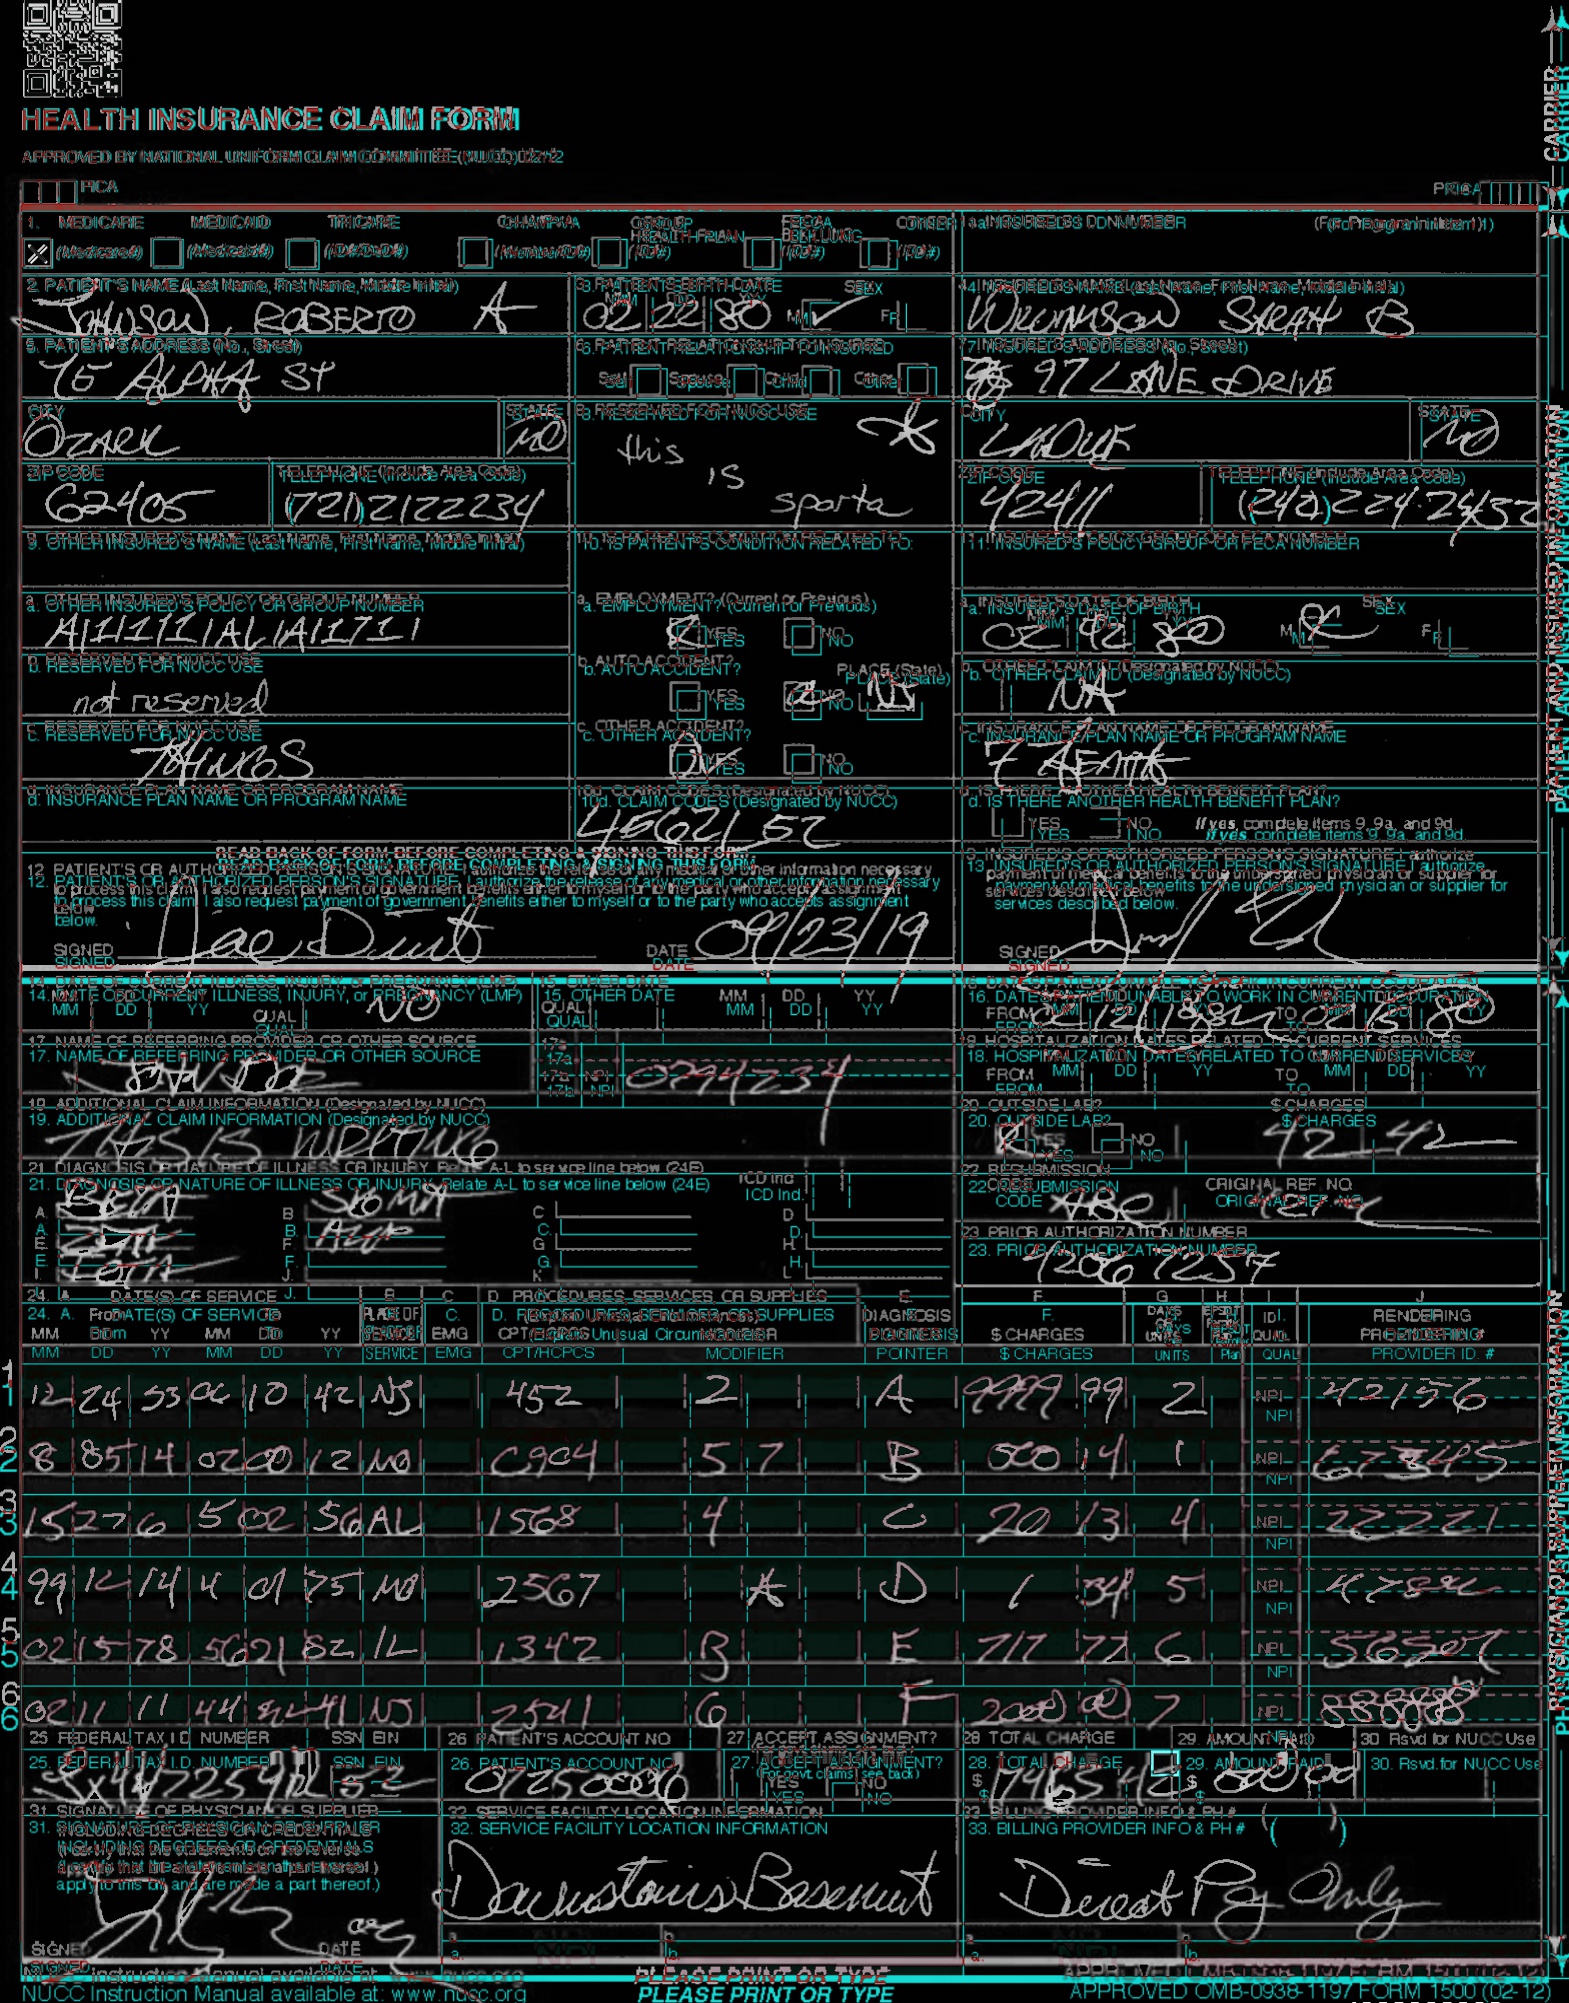 HEALTH INSURANCE CLAIM FORM
APPROVED BY NATIONAL UNIFORM CLAIM COMMITTEE (NUCC) 02/12
PICA
PICA
CARRIER
1. MEDICARE MEDICAID TRICARE CHAMPVA GROUP HEALTH PLAN FECA BLK LUNG OTHER
(Medicare#) (Medicaid#) (ID#/DoD#) (Member ID#) (ID#) (ID#) (ID#)
1a. INSURED'S I.D. NUMBER (For Program in Item 1)
2. PATIENT'S NAME (Last Name, First Name, Middle Initial)
JOHNSON, ROBERTO A
3. PATIENT'S BIRTH DATE SEX
MM DD YY
02 22 80 M F
4. INSURED'S NAME (Last Name, First Name, Middle Initial)
SARAH B
5. PATIENT'S ADDRESS (No., Street)
7E ALPHA ST
6. PATIENT RELATIONSHIP TO INSURED
Self Spouse Child Other
7. INSURED'S ADDRESS (No., Street)
97 LANE DRIVE
CITY STATE
OZARK MO
8. RESERVED FOR NUCC USE
this
is
sparta
CITY STATE
LADUE MO
ZIP CODE TELEPHONE (Include Area Code)
62405 (721) 2122234
ZIP CODE TELEPHONE (Include Area Code)
42411
9. OTHER INSURED'S NAME (Last Name, First Name, Middle Initial)
10. IS PATIENT'S CONDITION RELATED TO:
11. INSURED'S POLICY GROUP OR FECA NUMBER
a. OTHER INSURED'S POLICY OR GROUP NUMBER
a. EMPLOYMENT? (Current or Previous)
YES NO
a. INSURED'S DATE OF BIRTH SEX
MM DD YY
02 92 80 M F
b. RESERVED FOR NUCC USE
not reserved
b. AUTO ACCIDENT? PLACE (State)
YES NO
b. OTHER CLAIM ID (Designated by NUCC)
NA
c. RESERVED FOR NUCC USE
THINGS
c. OTHER ACCIDENT?
YES NO
c. INSURANCE PLAN NAME OR PROGRAM NAME
d. INSURANCE PLAN NAME OR PROGRAM NAME
10d. CLAIM CODES (Designated by NUCC)
4562152
d. IS THERE ANOTHER HEALTH BENEFIT PLAN?
YES NO If yes, complete items 9, 9a, and 9d.
READ BACK OF FORM BEFORE COMPLETING & SIGNING THIS FORM.
12. PATIENT'S OR AUTHORIZED PERSON'S SIGNATURE I authorize the release of any medical or other information necessary
to process this claim. I also request payment of government benefits either to myself or to the party who accepts assignment
below.
SIGNED DATE 09/23/19
13. INSURED'S OR AUTHORIZED PERSON'S SIGNATURE I authorize
payment of medical benefits to the undersigned physician or supplier for
services described below.
SIGNED
PATIENT AND INSURED INFORMATION
14. DATE OF CURRENT ILLNESS, INJURY, or PREGNANCY (LMP)
MM DD YY QUAL. NO
15. OTHER DATE
QUAL. MM DD YY
16. DATES PATIENT UNABLE TO WORK IN CURRENT OCCUPATION
FROM TO
17. NAME OF REFERRING PROVIDER OR OTHER SOURCE
17a.
17b. NPI 0294234
18. HOSPITALIZATION DATES RELATED TO CURRENT SERVICES
MM DD YY MM DD YY
FROM TO
19. ADDITIONAL CLAIM INFORMATION (Designated by NUCC)
THIS IS WRITING
20. OUTSIDE LAB? $ CHARGES
YES NO 42 42
21. DIAGNOSIS OR NATURE OF ILLNESS OR INJURY Relate A-L to service line below (24E) ICD Ind.
A. BETA B. SIGMA C. D.
E. ZETA F. G. H.
I. IOTA J. K. L.
22. RESUBMISSION CODE ORIGINAL REF. NO.
23. PRIOR AUTHORIZATION NUMBER
42067257
24. A. DATE(S) OF SERVICE B. PLACE OF SERVICE C. EMG D. PROCEDURES, SERVICES, OR SUPPLIES E. DIAGNOSIS POINTER F. $ CHARGES G. DAYS OR UNITS H. I. ID. QUAL. J. RENDERING PROVIDER ID. #
From To
(Explain Unusual Circumstances)
MM DD YY MM DD YY CPT/HCPCS MODIFIER
1 12 24 53 06 10 42 NJ 452 2 A 9999 99 2 NPI 42156
2 8 85 14 02 00 12 MO C904 5 7 B 000 14 1 NPI 67345
3 15 27 6 5 02 56 AL 1568 4 C 20 13 4 NPI 22221
4 99 12 14 4 01 75 MO 2567 A D 1 34 5 NPI
5 02 15 78 56 21 82 IL 1342 B E 717 22 6 NPI
6 02 11 11 44 41 NJ 2541 6 F 2000 00 7 NPI 888888
25. FEDERAL TAX I.D. NUMBER SSN EIN
26. PATIENT'S ACCOUNT NO.
27. ACCEPT ASSIGNMENT?
(For govt. claims, see back)
YES NO
28. TOTAL CHARGE
$
29. AMOUNT PAID
$
30. Rsvd for NUCC Use
31. SIGNATURE OF PHYSICIAN OR SUPPLIER
INCLUDING DEGREES OR CREDENTIALS
(I certify that the statements on the reverse
apply to this bill and are made a part thereof.)
SIGNED DATE
32. SERVICE FACILITY LOCATION INFORMATION
Downstairs Basement
a. b.
33. BILLING PROVIDER INFO & PH # ( )
Direct Pay Only
a. b.
PHYSICIAN OR SUPPLIER INFORMATION
NUCC Instruction Manual available at: www.nucc.org
PLEASE PRINT OR TYPE
APPROVED OMB-0938-1197 FORM 1500 (02-12)